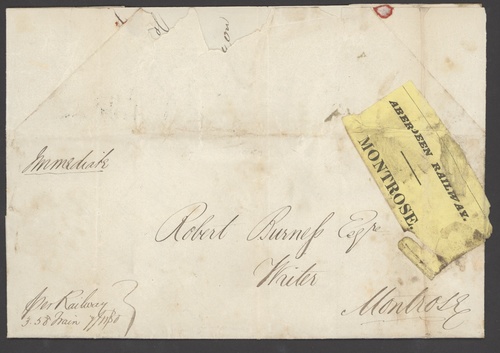 Immediate
ABERDEEN RAILWAY.
MONTROSE.
Robert Burness Esqre
Writer
Montrose
per Railway
3.58 Train